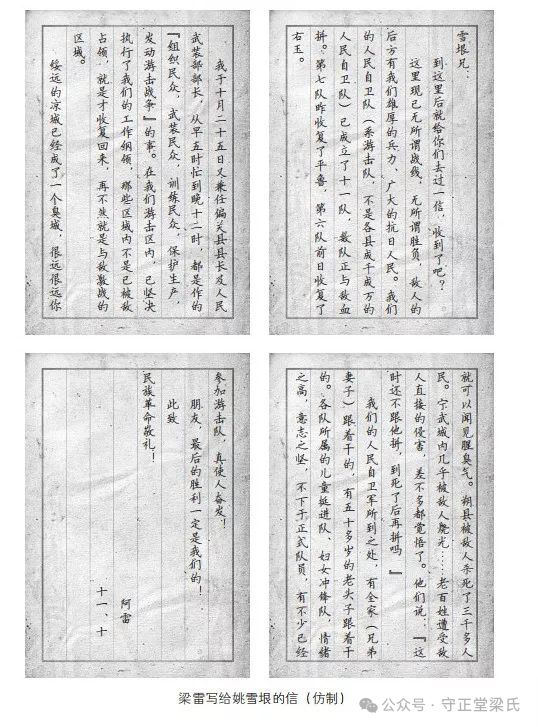 雪垠兄：
到这里后就给你们去过一信，收到了吧？
这里现已无所谓战线，无所谓胜负，敌人的
后方有我们雄厚的兵力、广大的抗日人民。我们
的人民自卫队（系游击队，不是各县成千成万的
人民自卫队）已成立了十一队，数队正与敌血
拼。第七队昨收复了平鲁，第六队前日收复了
右玉。
我于十月二十五日又兼任偏关县县长及人民
武装部部长，从早五时忙到晚十二时，都是作的
『组织民众，武装民众，训练民众，保护生产，
发动游击战争』的事。在我们游击区内，已坚决
执行了我们的工作纲领，那些区域内不是已被敌
占领，就是才收复回来，再不然就是与敌激战的
区域。
绥远的凉城已经成了一个臭城，很远很远你
就可以闻见腥臭气。朔县被敌人杀死了三千多人
民。宁武城内几乎被敌人烧光……老百姓遭受敌
人直接的侵害，差不多都觉悟了。他们说：『这
时还不跟他拼，到死了后再拼吗』
我们的人民自卫军所到之处，有全家（兄弟
妻子）跟着干的，有五十多岁的老头子跟着干
的。各队所属的儿童挺进队、妇女冲锋队，情绪
之高，意志之坚，不下于正式队员，有不少已经
参加游击队，真使人奋发！
朋友，最后的胜利一定是我们的！
此致
民族革命敬礼！
阿雷
十一、十
梁雷写给姚雪垠的信（仿制）
公众号·守正堂梁氏